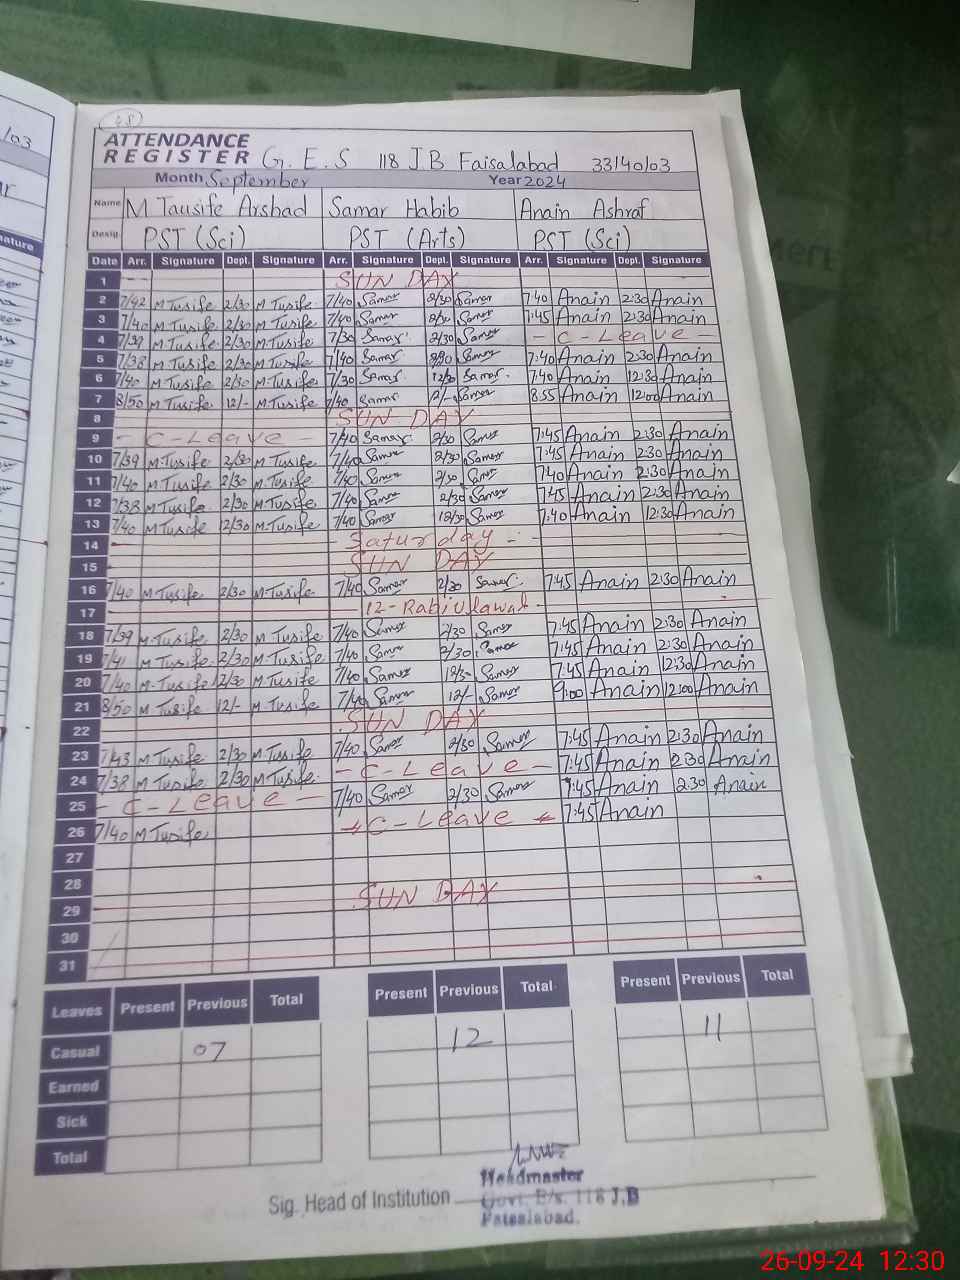 48
ATTENDANCE
REGISTER G.E.S 118 J.B Faisalabad 33140103
Month September Year 2024
Name M Tausife Arshad Samar Habib Anain Ashraf
Desig. PST (Sci) PST (Arts) PST (Sci)
Date Arr. Signature Dept. Signature Arr. Signature Dept. Signature Arr. Signature Dept. Signature
1 SUN DAY
2 7/42 M Tusife 2/30 M Tusife 7/40 Samar 2/30 Samar 7:40 Anain 2:30 Anain
3 7/40 M Tusife 2/30 M Tusife 7/40 Samar 2/30 Samar 7:45 Anain 2:30 Anain
4 7/39 M Tusife 2/30 M Tusife 7/30 Samar 2/30 Samar - C-Leave -
5 7/38 M Tusife 2/30 M Tusife 7/40 Samar 2/30 Samar 7:40 Anain 2:30 Anain
6 7/40 M Tusife 12/30 M Tusife 7/30 Samar 12/30 Samar 7:40 Anain 12:30 Anain
7 8/50 M Tusife 12/- M Tusife 7/40 Samar 12/- Samar 8:55 Anain 12:00 Anain
8 SUN DAY
9 - C-Leave - 7/40 Samar 2/30 Samar 7:45 Anain 2:30 Anain
10 7/39 M.Tusife 2/30 M Tusife 7/40 Samar 2/30 Samar 7:45 Anain 2:30 Anain
11 7/40 M Tusife 2/30 M Tusife 7/40 Samar 2/30 Samar 7:40 Anain 2:30 Anain
12 7/38 M Tusife 2/30 M Tusife 7/40 Samar 2/30 Samar 7:45 Anain 2:30 Anain
13 7/40 M Tusife 12/30 M Tusife 7/40 Samar 12/30 Samar 7:40 Anain 12:30 Anain
14 - Saturday -
15 SUN DAY
16 7/40 M Tusife 2/30 M.Tusife 7/40 Samar 2/30 Samar 7:45 Anain 2:30 Anain
17 12-Rabiulawal -
18 7/39 M.Tusife 2/30 M Tusife 7/40 Samar 2/30 Samar 7:45 Anain 2:30 Anain
19 7/41 M.Tusife 2/30 M.Tusife 7/40 Samar 2/30 Samar 7:45 Anain 2:30 Anain
20 7/40 M.Tusife 12/30 M Tusife 7/40 Samar 12/30 Samar 7:45 Anain 12:30 Anain
21 8/50 M Tusife 12/- M Tusife 7/40 Samar 12/- Samar 9:00 Anain 12:00 Anain
22 SUN DAY
23 7/43 M Tusife 2/30 M Tusife 7/40 Samar 2/30 Samar 7:45 Anain 2:30 Anain
24 7/38 M Tusife 2/30 M Tusife - C-Leave - 7:45 Anain 2:30 Anain
25 - C-Leave - 7/40 Samar 2/30 Samar 7:45 Anain 2:30 Anain
26 7/40 M Tusife - C-Leave - 7:45 Anain
27
28
29 SUN DAY
30
31
Leaves Present Previous Total Present Previous Total Present Previous Total
Casual 07 12 11
Earned
Sick
Total
Sig. Head of Institution
Headmaster
Govt. E/s. 118 J.B
Faisalabad.
26-09-24 12:30